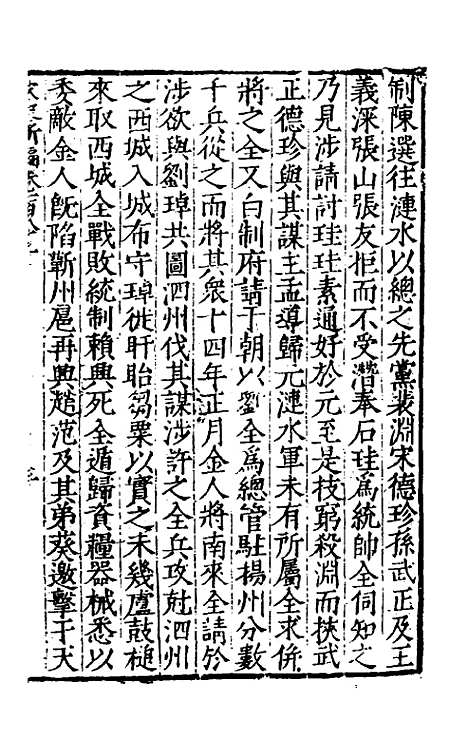 制陳選往漣水以總之先黨裴淵宋德珍孫武正及王
義深張山張友拒而不受潛奉石珪爲統帥全伺知之
乃見涉請討珪珪素通好於元至是技窮殺淵而挾武
正德珍與其謀主孟導歸元漣水軍未有所屬全求併
將之全又白制府請于朝以劉全爲總管駐楊州分數
千兵從之而將其衆十四年正月金人將南來全請於
涉欲與劉琸共圖泗州伐其謀涉許之全兵攻尅泗州
之西城入城布守琸徙盱眙芻粟以實之未幾盧鼓槌
來取西城全戰敗統制賴興死全遁歸資糧器械悉以
委敵金人旣陷蘄州扈再興趙范及其弟葵邀擊于天
宋史新編卷一百八十